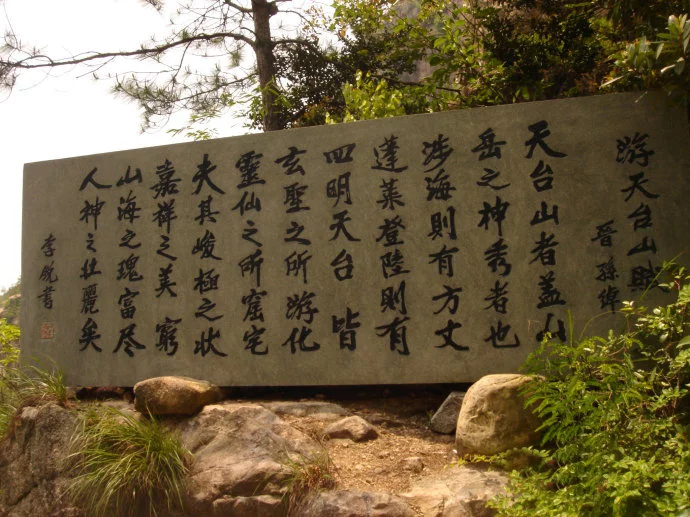 游天台山賦
晉孫綽
天台山者盖山
岳之神秀者也
涉海則有方丈
蓬萊登陸則有
四明天台皆
玄聖之所游化
靈仙之所窟宅
夫其峻極之狀
嘉祥之美窮
山海之瑰富尽
人神之壯麗矣
李銳書